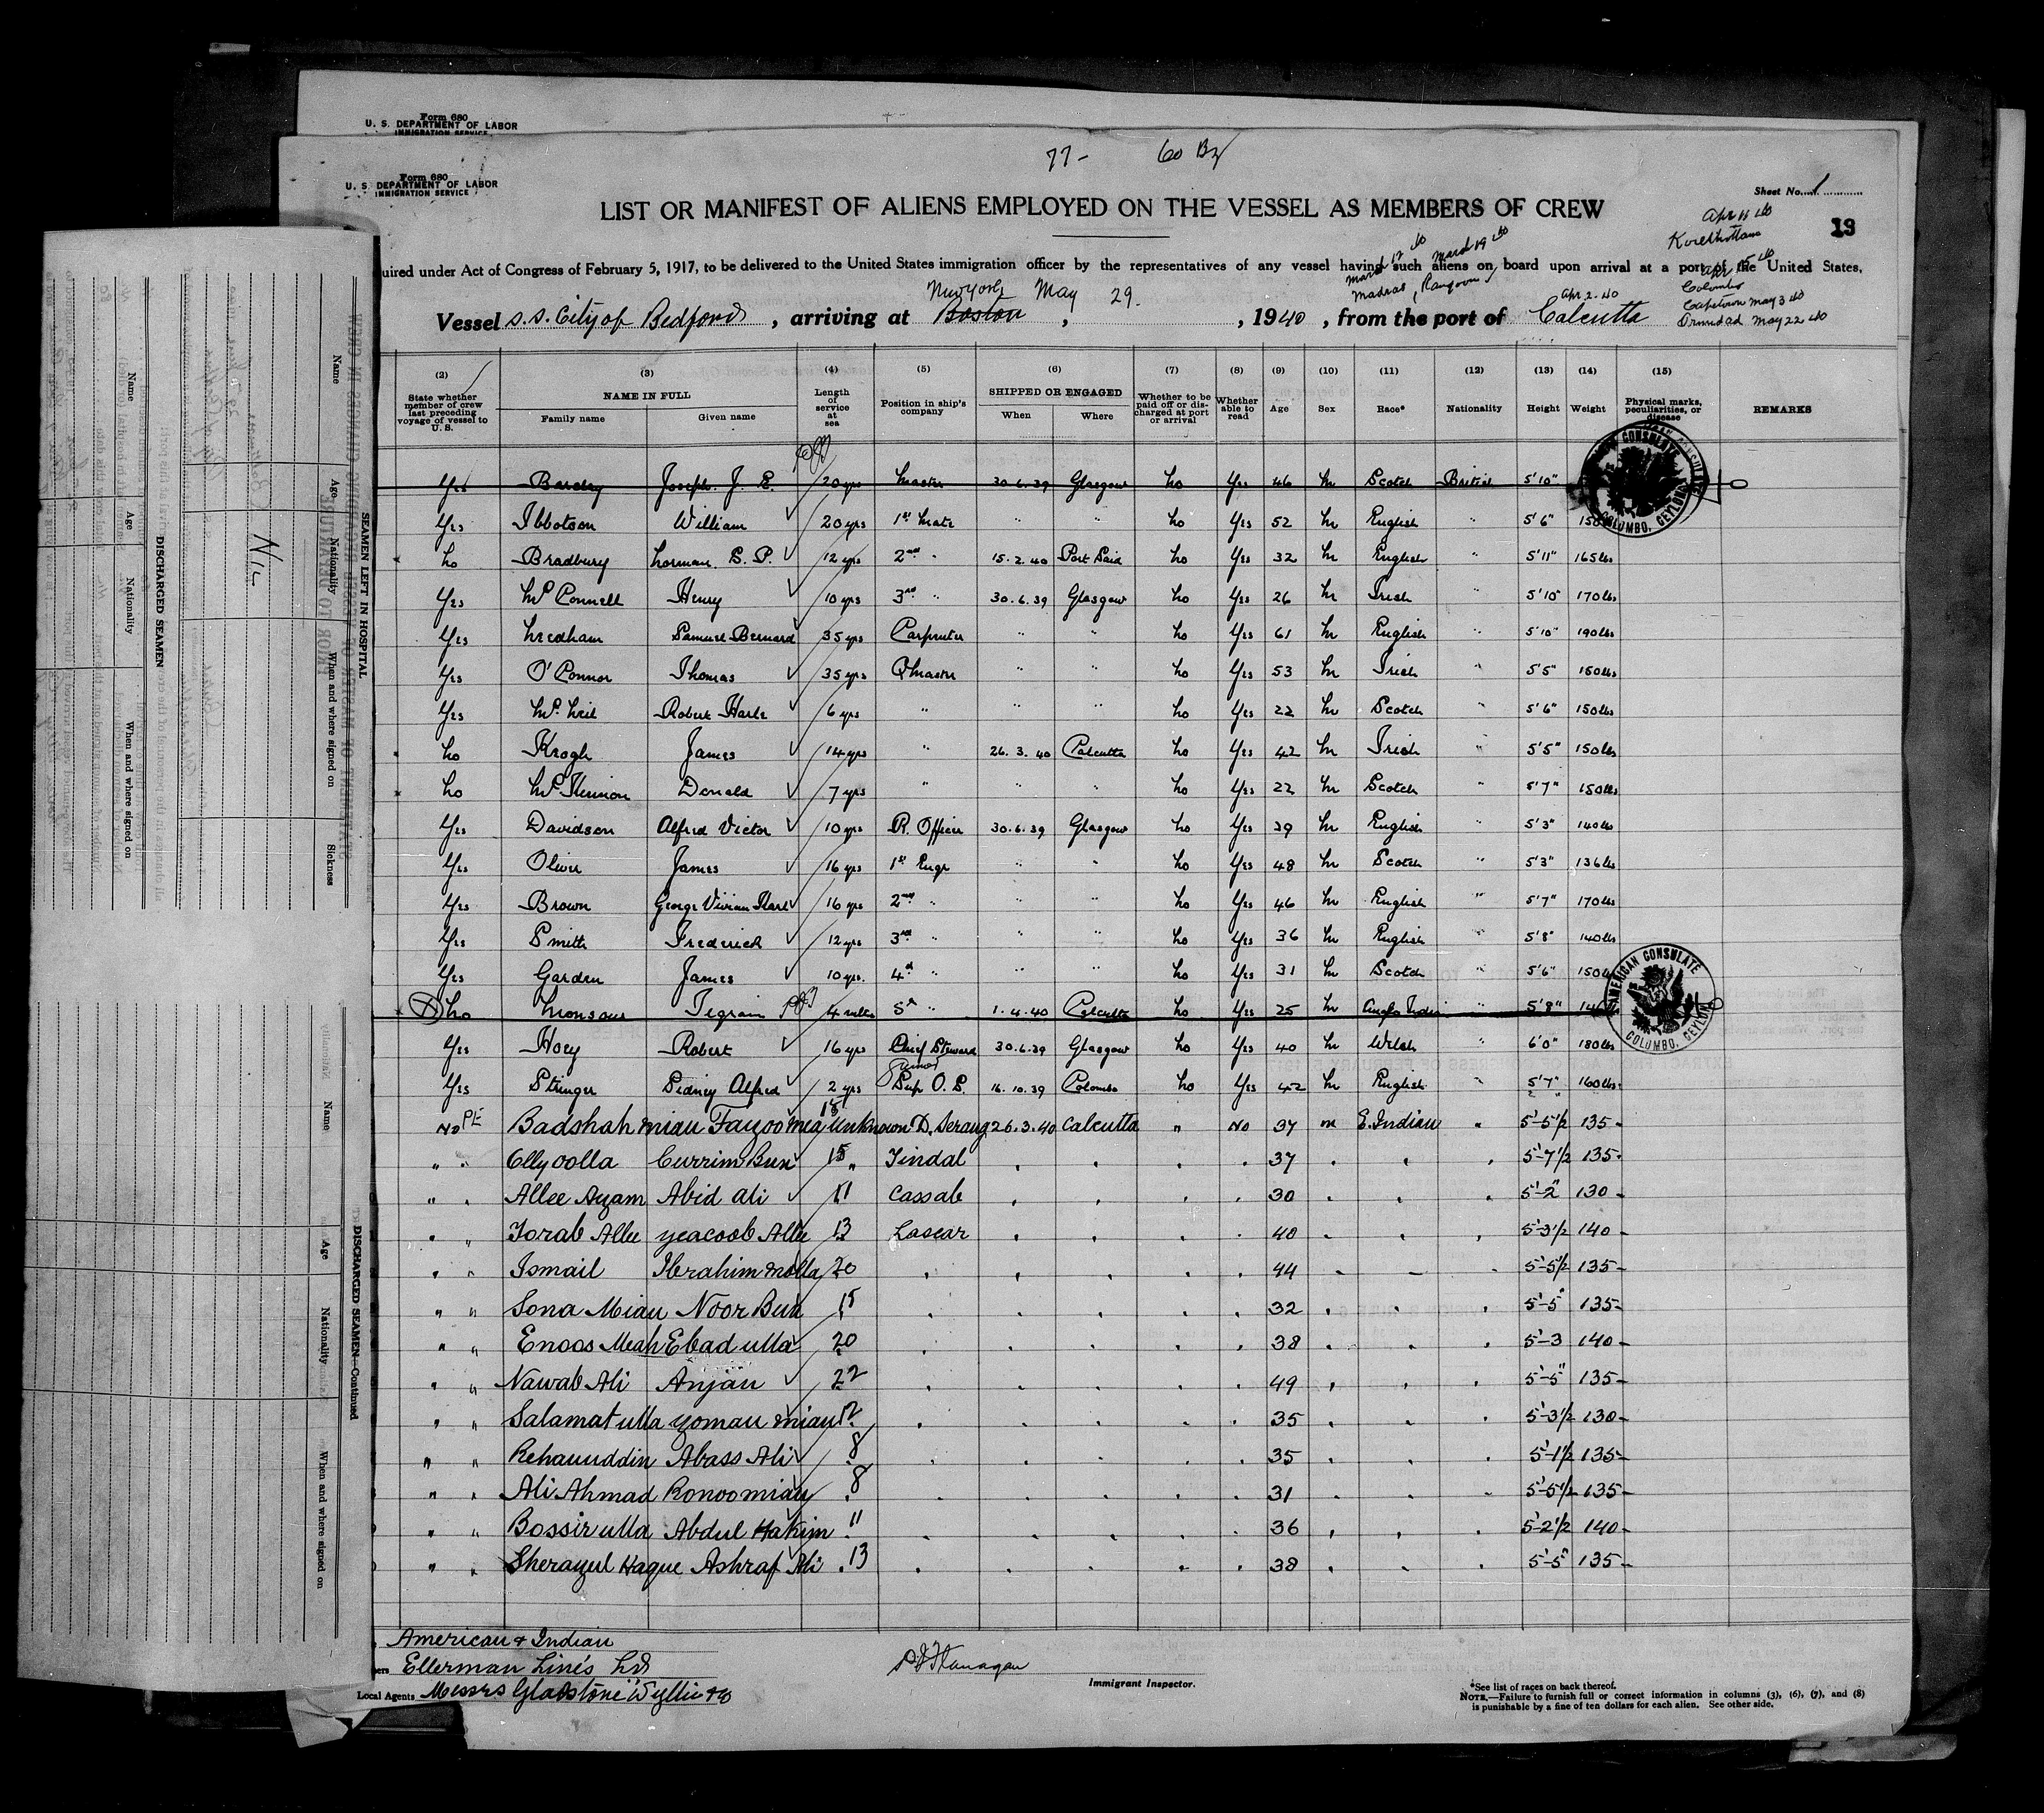 Form 680
U. S. DEPARTMENT OF LABOR
IMMIGRATION SERVICE
77- 60
Form 680
U. S. DEPARTMENT OF LABOR
IMMIGRATION SERVICE
Sheet No. 1
LIST OR MANIFEST OF ALIENS EMPLOYED ON THE VESSEL AS MEMBERS OF CREW
19
Apr 11 40
March 12 40 March 19 40
uired under Act of Congress of February 5, 1917, to be delivered to the United States immigration officer by the representatives of any vessel having such aliens on board upon arrival at a port of the United States,
Madras, Rangoon
Apr 15 40
Colombo
Capetown May 3 40
Trinidad May 22 40
New York May 29. Apr 2. 40
Vessel S.S. City of Bedford, arriving at Boston, , 1940, from the port of Calcutta
(2) (3) (4) (5) (6) (7) (8) (9) (10) (11) (12) (13) (14) (15)
State whether member of crew last preceding voyage of vessel to U. S. NAME IN FULL Family name Given name Length of service at sea Position in ship's company SHIPPED OR ENGAGED When Where Whether to be paid off or discharged at port or arrival Whether able to read Age Sex Race* Nationality Height Weight Physical marks, peculiarities, or disease REMARKS
Yes Barclay Joseph. J. E. 20 yrs Master 30.6.39 Glasgow No Yes 46 M Scotch British 5'10"
Yes Ibbotson William 20 yrs 1st Mate " " No Yes 52 M English " 5'6" 150
No Bradbury Norman. S. P. 12 yrs 2nd " 15.2.40 Port Said No Yes 32 M English " 5'11" 165 lbs
Yes McConnell Henry 10 yrs 3rd " 30.6.39 Glasgow No Yes 26 M Irish 5'10" 170 lbs
Yes Needham Samuel Bernard 35 yrs Carpenter " " No Yes 61 M English " 5'10" 190 lbs
Yes O'Connor Thomas 35 yrs QMaster " " No Yes 53 M Irish " 5'5" 150 lbs
Yes McNeil Robert 6 yrs " " " No Yes 22 M Scotch " 5'6" 150 lbs
No Krogh James 14 yrs " 26.3.40 Calcutta No Yes 42 M Irish " 5'5" 150 lbs
No McKinnon Donald 7 yrs " " " No Yes 22 M Scotch " 5'7" 150 lbs
Yes Davidson Alfred Victor 10 yrs R. Officer 30.6.39 Glasgow No Yes 39 M English " 5'3" 140 lbs
Yes Oliver James 16 yrs 1st Engr " " No Yes 48 M Scotch " 5'3" 136 lbs
Yes Brown George Vivian 16 yrs 2nd " " " No Yes 46 M English " 5'7" 170 lbs
Yes Smith Frederick 12 yrs 3rd " " " No Yes 36 M English " 5'8" 140 lbs
Yes Garden James 10 yrs. 4th " " " No Yes 31 M Scotch " 5'6" 150 lbs
No Tigrain 4 mths 5th " 1.4.40 Calcutta No Yes 25 M Anglo Indian " 5'8"
Yes Hoey Robert 16 yrs Chief Steward 30.6.39 Glasgow No Yes 40 M Welch " 6'0" 180 lbs
Yes Stringer Sidney Alfred 2 yrs Junior Sup. O. S. 16.10.39 Colombo No Yes 42 M English " 5'7" 160 lbs
No PE Badshah mian Fayoo mea 15 Unknown D. Serang 26.3.40 Calcutta " No 37 m E. Indian " 5'-5½ 135-
" " Ollyoolla Currim Bux 15 " Tindal 37 5'-7½ 135-
" " Allee Azam Abid Ali 11 Cassab 30 5'-2" 130-
" " Torab Allee yeacoob Allee 13 Lascar 40 5'-3½ 140-
" " Ismail Ibrahim molla 20 44 5'-5½ 135-
" " Sona Mian Noor Bux 15 32 5'-5" 135-
" " Enoos Meah Ebad ulla 20 38 5'-3 140-
" " Nawab Ali Anjan 22 49 5'-5" 135-
" " Salamat ulla yoman mian 12 35 5'-3½ 130-
" " Rehanuddin Abass Ali 8 35 5'-1½ 135-
" " Ali Ahmad Ronoo mian 8 31 5'-5½ 135-
" " Bossir ulla Abdul Hakim 11 36 5'-2½ 140-
" " Sherazul Haque Ashraf Ali 13 38 5'-5" 135-
AMERICAN CONSULATE
COLOMBO, CEYLON
AMERICAN CONSULATE
COLOMBO, CEYLON
American & Indian
ners Ellerman Lines Ld
Local Agents Messrs Gladstone Wyllie & Co
Flanagan
Immigrant Inspector.
*See list of races on back thereof.
NOTE.—Failure to furnish full or correct information in columns (3), (6), (7), and (8)
is punishable by a fine of ten dollars for each alien. See other side.
SEAMEN LEFT IN HOSPITAL
Name Age Nationality When and where signed on Sickness
NIL
DISCHARGED SEAMEN
Name Age Nationality When and where signed on
DISCHARGED SEAMEN—Continued
Name Age Nationality When and where signed on